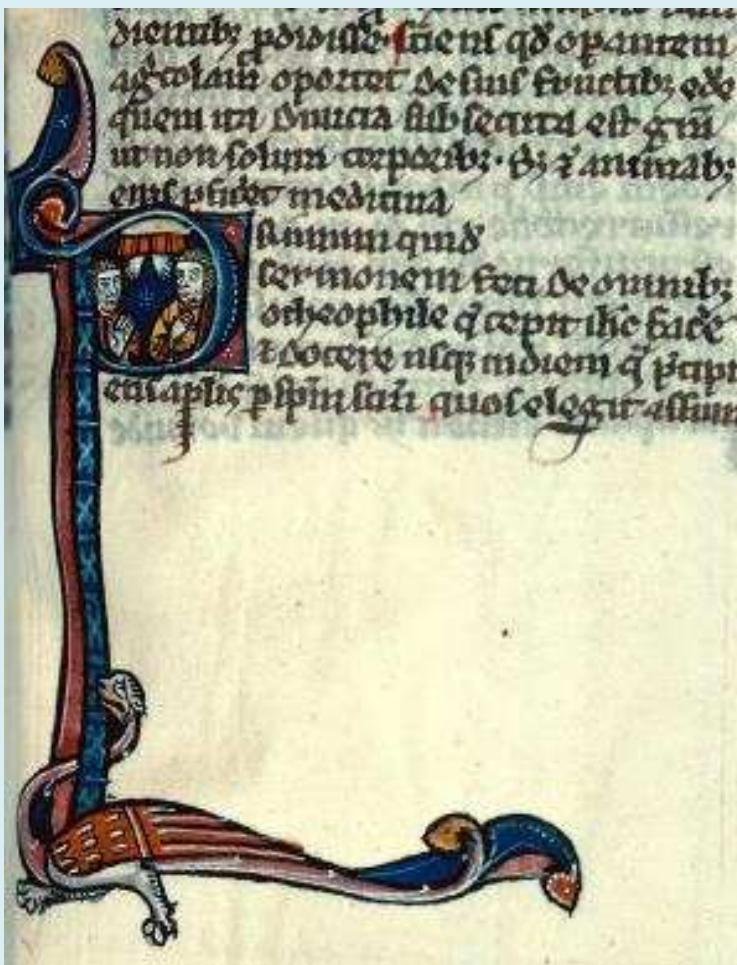 dientibȝ ꝓdidisse. sciens qđ oꝑantem
agͥcolam oportet de suis fructibȝ edͤe
quem ita diuicia subsecuta est gᷓm
ut non solum corporibȝ. sȝ ⁊ animabȝ
eiuſ ꝓficͤet medicina
Primum quidē
sermonem feci de omnibȝ
otheophile q̄ cepit ihc facͤe
⁊ docere usqȝ indiem q̄ pͤcipi
enſ aplis ꝑ spm̄ scm̄ quos elegit assum